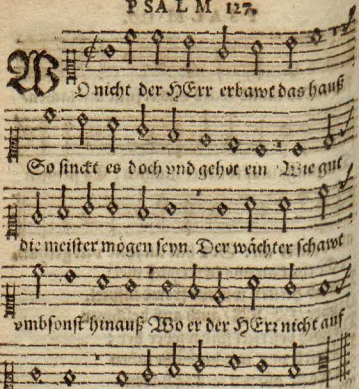 PSALM 127.
WO nicht der HErr erbawt das hauß
So sinckt es doch vnd gehet ein Wie gut
die meister mögen seyn. Der wächter schawt
vmbsonst hinauß Wo er der HErr nicht auf